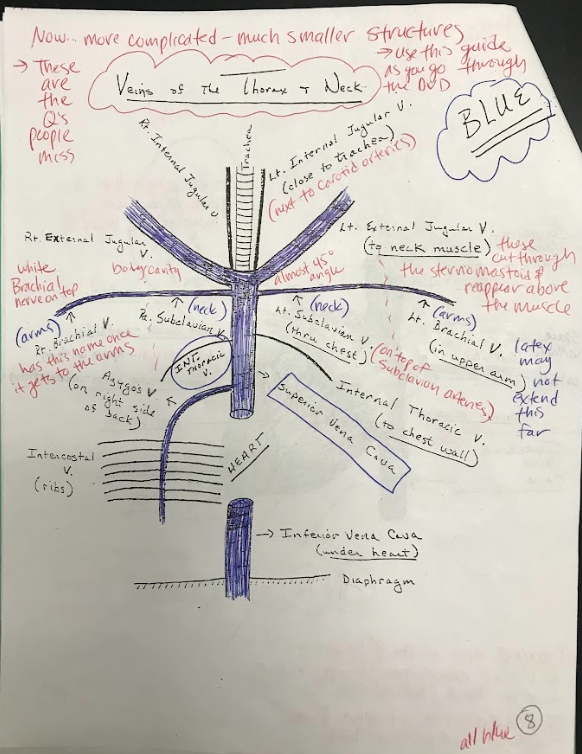 Now... more complicated - much smaller structures
→ These
are
the
Q's
people
miss
→ use this guide
as you go through
the DVD
Veins of The Thorax + Neck
BLUE
Rt. Internal Jugular V.
Trachea
Lt. Internal Jugular V.
(close to trachea)
(next to carotid arteries)
Rt. External Jugular
V.
Lt. External Jugular V.
(to neck muscle)
these
cut through
the sternomastoid &
reappear above
the muscle
white
Brachial
nerve on top
body cavity
almost 45°
angle
(neck)
(neck)
(arms)
(arms)
Rt. Brachial V.
has this name once
it gets to the arms
Rt. Subclavian V.
Lt. Subclavian V.
(thru chest)
(on top of
Subclavian arteries)
Lt. Brachial V.
(in upper arm)
latex
may
not
extend
this
far
INT.
THORACIC
V.
Azygos V
(on right side
of back)
Internal Thoracic V.
(to chest wall)
Superior Vena Cava
HEART
Intercostal
V.
(ribs)
→ Inferior Vena Cava
(under heart)
Diaphragm
all blue
8